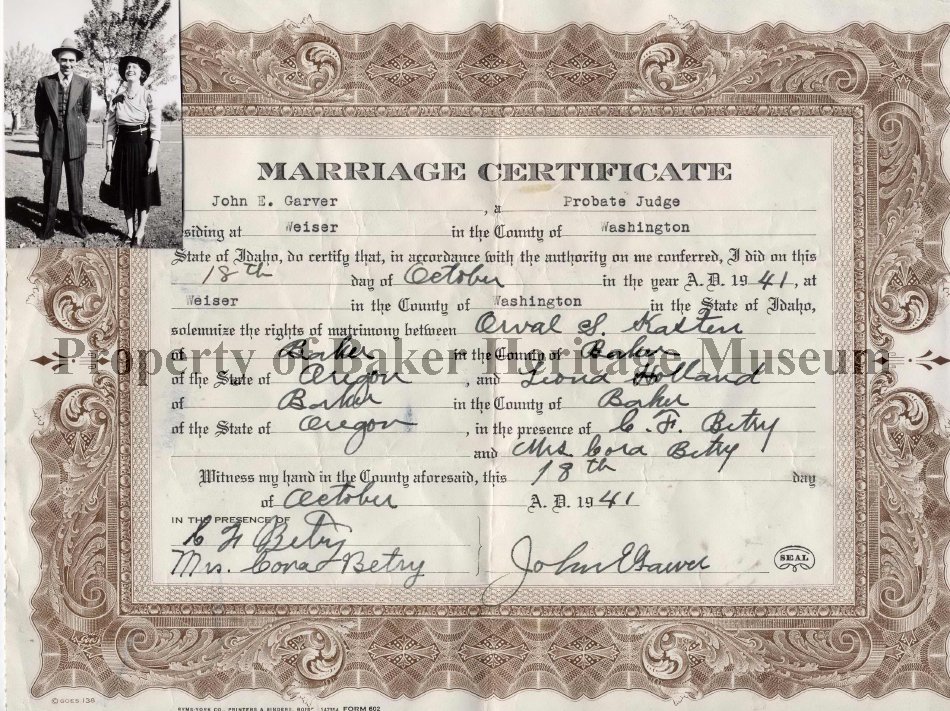 MARRIAGE CERTIFICATE
John E. Garver, a Probate Judge
siding at Weiser in the County of Washington
State of Idaho, do certify that, in accordance with the authority on me conferred, I did on this
18th day of October in the year A. D. 1941, at
Weiser in the County of Washington in the State of Idaho,
solemnize the rights of matrimony between Orval S. Kasten
Property of Baker Heritage Museum
of Baker in the County of Baker
of the State of Oregon, and Liona Holland
of Baker in the County of Baker
of the State of Oregon, in the presence of C. F. Betry
and Mrs. Cora Betry
Witness my hand in the County aforesaid, this 18th day
of October A. D. 1941
IN THE PRESENCE OF
C F Betry
Mrs. Cora Betry John E Garver SEAL
© GOES 136
SYMS-YORK CO., PRINTERS & BINDERS, BOISE FORM 602